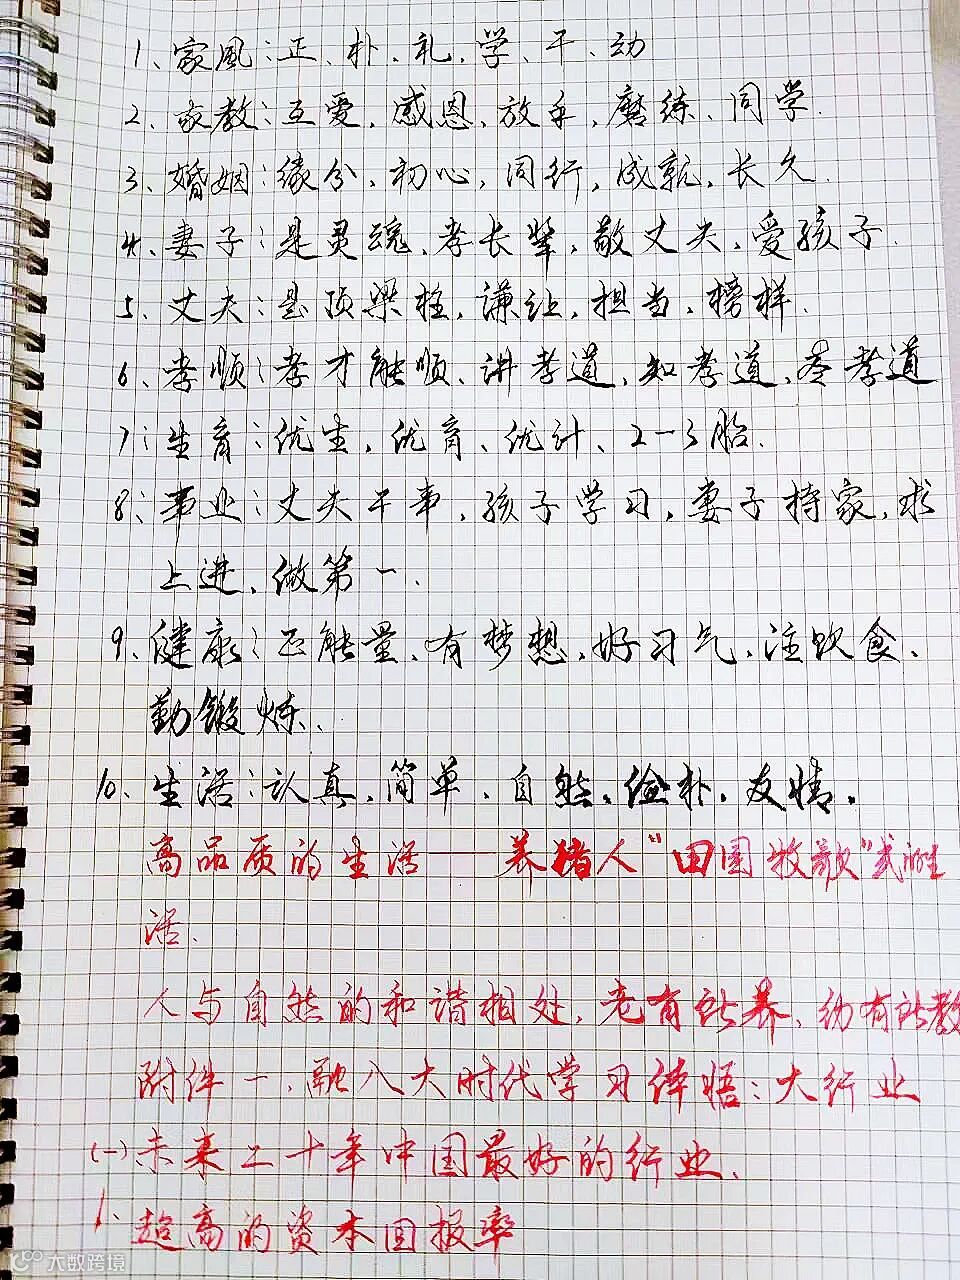 1、家風：正、朴、礼、学、干、动
2、家教：互爱，感恩，放手，磨练、同学.
3、婚姻：缘分，初心，同行，成就，长久.
4、妻子：是灵魂，孝长辈，敬丈夫，爱孩子.
5、丈夫：是顶梁柱，谦让，担当，榜样.
6、孝顺：孝才能顺、讲孝道，知孝道，尽孝道
7、生育：优生，优育、优计、2-3胎.
8、事业：丈夫干事，孩子学习，妻子持家，求
上进，做第一.
9、健康：正能量，有梦想，好习气，注饮食、
勤锻炼、
10、生活：认真，简单、自然，俭朴，友情。
高品质的生活——养猪人“田园牧歌”式
活.
人与自然的和谐相处，老有所养，幼有所教
附件一，融入大时代学习体悟：大行业
(一)未来二十年中国最好的行业、
1、超高的资本回报率
大数跨境